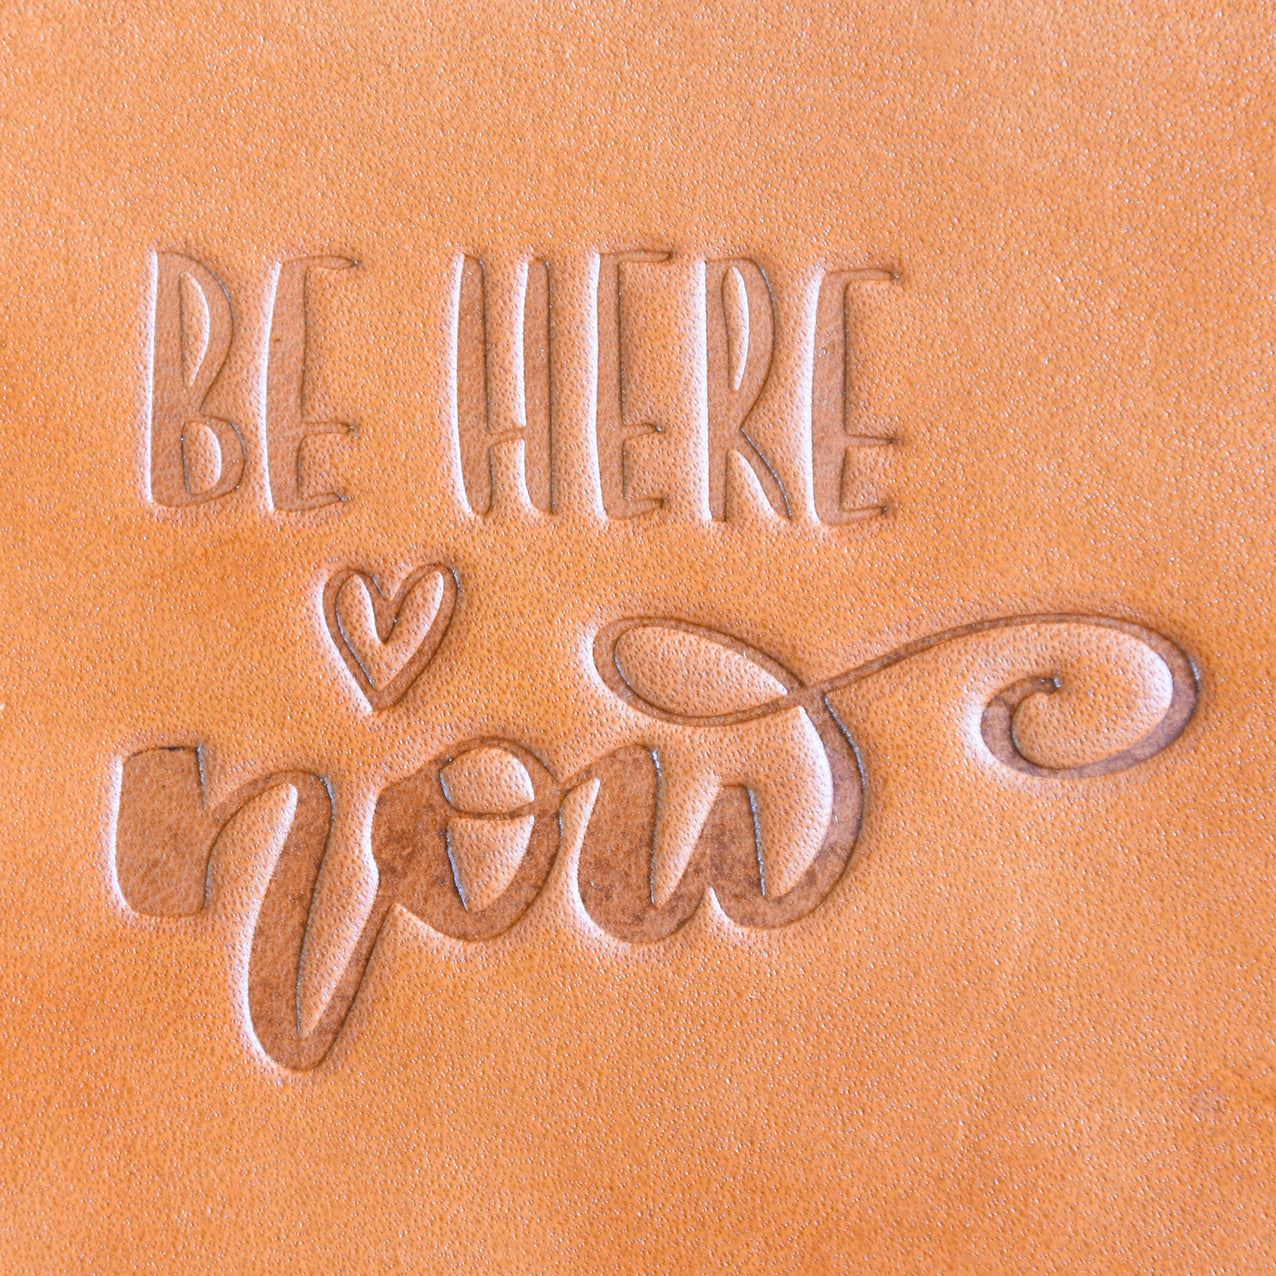 BE HERE
now